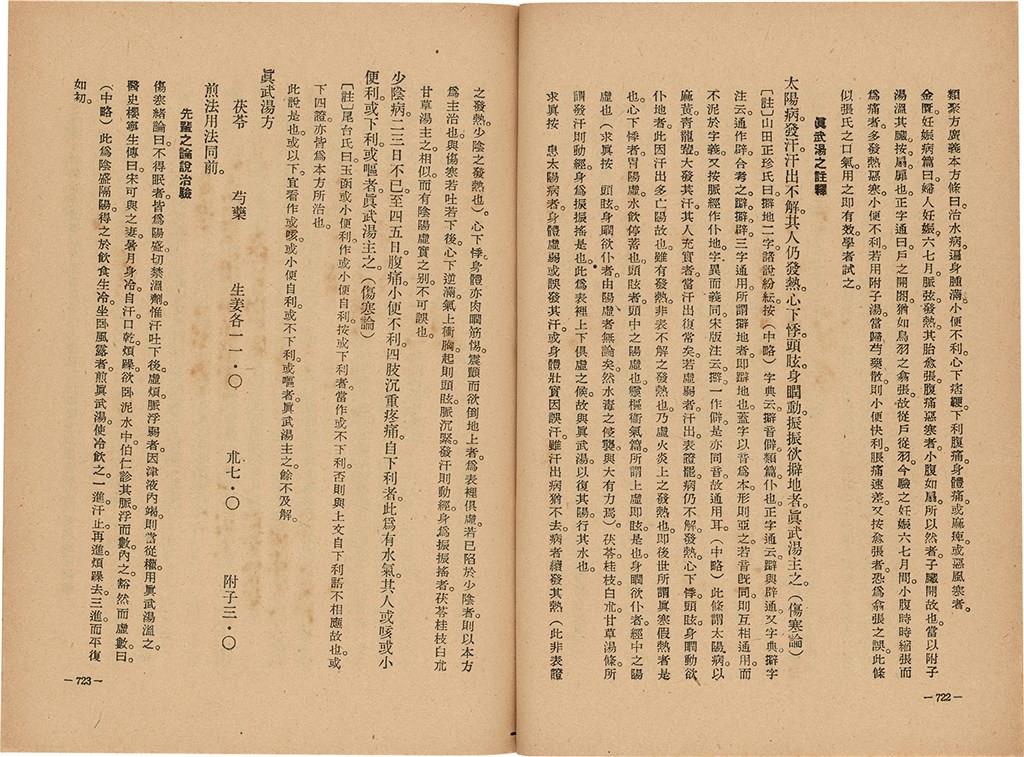 類聚方廣義本方條曰治水病遍身腫滿小便不利心下痞鞕下利腹痛身體痛或麻痺或惡風寒者。
金匱妊娠病篇曰婦人妊娠六七月脈弦發熱其胎愈張腹痛惡寒者小腹如扇所以然者子臟開故也當以附子
湯溫其臟按扇扉也正字通曰戶之開闔猶如鳥羽之翕張故從戶從羽今驗之妊娠六七月間小腹時時縮張而
爲痛者多發熱惡寒小便不利若用附子湯當歸芍藥散則小便快利脹痛速差又按愈張者恐爲翕張之誤此條
似張氏之口氣用之即有效學者試之。
眞武湯之註釋
太陽病發汗汗出不解其人仍發熱心下悸頭眩身瞤動振振欲擗地者眞武湯主之(傷寒論)
[註]山田正珍氏曰擗地二字諸說紛紜按(中略)字典云擗音僻類篇仆也正字通云躃與辟通又字典擗字
注云通作辟合考之躃擗辟三字通用所謂擗地者即躃地也蓋字以音爲本形則亞之若音旣同則互相通用而
不泥於字義又按脈經作仆地字異而義同宋版注云擗一作僻是亦同音故通用耳(中略)此條謂太陽病以
麻黃青龍輩大發其汗其人充實者當汗出復常矣若虛弱者汗出表證罷病仍不解發熱心下悸頭眩身瞤動欲
仆地者此因汗出多亡陽故也雖有發熱非表不解之發熱也乃虛火炎上之發熱也即後世所謂眞寒假熱者是
也心下悸者胃陽虛水飮停蓄也頭眩者頭中之陽虛也靈樞衞氣篇所謂上虛即眩是也身瞤欲仆者經中之陽
虛也(求眞按 頭眩身瞤欲仆者由陽虛者無論矣然水毒之侵襲與大有力焉)茯苓桂枝白朮甘草湯條所
謂發汗則動經身爲振振搖是也此爲表裡上下俱虛之候故與眞武湯以復其陽行其水也。
求眞按 患太陽病者身體虛弱或誤發其汗或身體壯實因誤汗雖汗出病猶不去病者續發其熱(此非表證
—722—
之發熱少陰之發熱也)心下悸身體亦肉瞤筋惕震顫而欲倒地上者爲表裡俱虛若已陷於少陰者則以本方
爲主治也與傷寒若吐若下後心下逆滿氣上衝胸起則頭眩脈沉緊發汗則動經身爲振振搖者茯苓桂枝白朮
甘草湯主之相似而有陰陽虛實之别不可誤也
少陰病二三日不已至四五日腹痛小便不利四肢沉重疼痛自下利者此爲有水氣其人或咳或小
便利或下利或嘔者眞武湯主之(傷寒論)
[註]尾台氏曰玉函或小便利作或小便自利按或下利者當作或不下利否則與上文自下利語不相應故也或
下四證亦皆爲本方所治也
此說是也或以下宜看作或咳或小便自利或不下利或嘔者眞武湯主之餘不及解。
眞武湯方
茯苓 芍藥 生姜各一一·〇 朮七·〇 附子三·〇
煎法用法同前。
先輩之論說治驗
傷寒緒論曰不得眠者皆爲陽盛切禁溫劑惟汗吐下後虛煩脈浮弱者因津液內竭則當從權用眞武湯溫之。
醫史櫻寧生傳曰宋可與之妻暑月身冷自汗口乾煩躁欲臥泥水中伯仁診其脈浮而數內之豁然而虛數曰
(中略)此爲陰盛隔陽得之於飮食生冷坐臥風露者煎眞武湯使冷飮之一進汗止再進煩躁去三進而平復
如初。
—723—